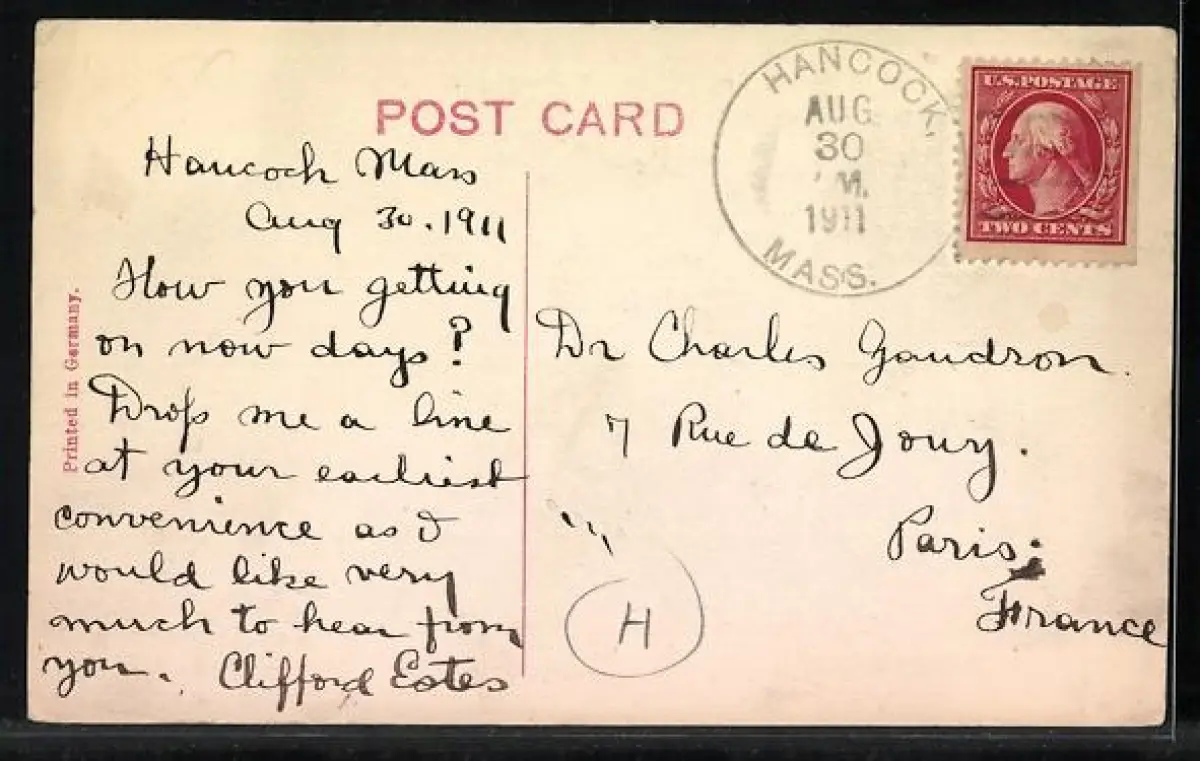 POST CARD
HANCOCK,
AUG
30
M.
1911
MASS.
U.S. POSTAGE
TWO CENTS
Printed in Germany.
Hancock Mass
Aug 30. 1911
How you getting
on now days?
Drop me a line
at your earliest
convenience as I
would like very
much to hear from
you. Clifford Estes
Dr Charles Gaudron.
7 Rue de Jouy.
Paris.
France
H